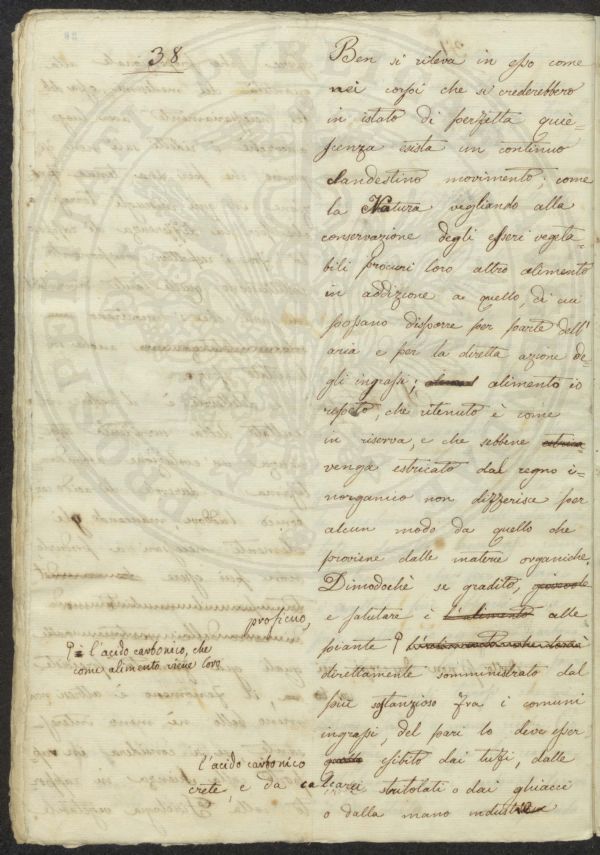 38
Ben si rileva in esso come
nei corpi che si crederebbero
in istato di perfetta quie-
scenza esista un continuo
clandestino movimento; come
la Natura vegliando alla
conservazione degli esseri vegeta-
bili procuri loro altro alimento
in addizione a quello, di cui
possano disporre per parte dell'
aria e per la diretta azione de-
gli ingrassi; alimento io
ripeto, che ritenuto è come
in riserva, e che sebbene estrica
venga estricato dal regno i-
norganico non differisce per
alcun modo da quello che
proviene dalle materie organiche.
Dimodochè se gradito, giovevole
proficuo,
e salutare è l'alimento alle
piante
è l'acido carbonico, che
come alimento viene loro
direttamente somministrato dal
più sostanzioso fra i comuni
ingrassi, del pari lo deve esser
l'acido carbonico
esibito dai tuffi, dalle
crete, e da calcarei stritolati o dai ghiacci
o dalla mano industre
PROSPERITATI PUBLICAE